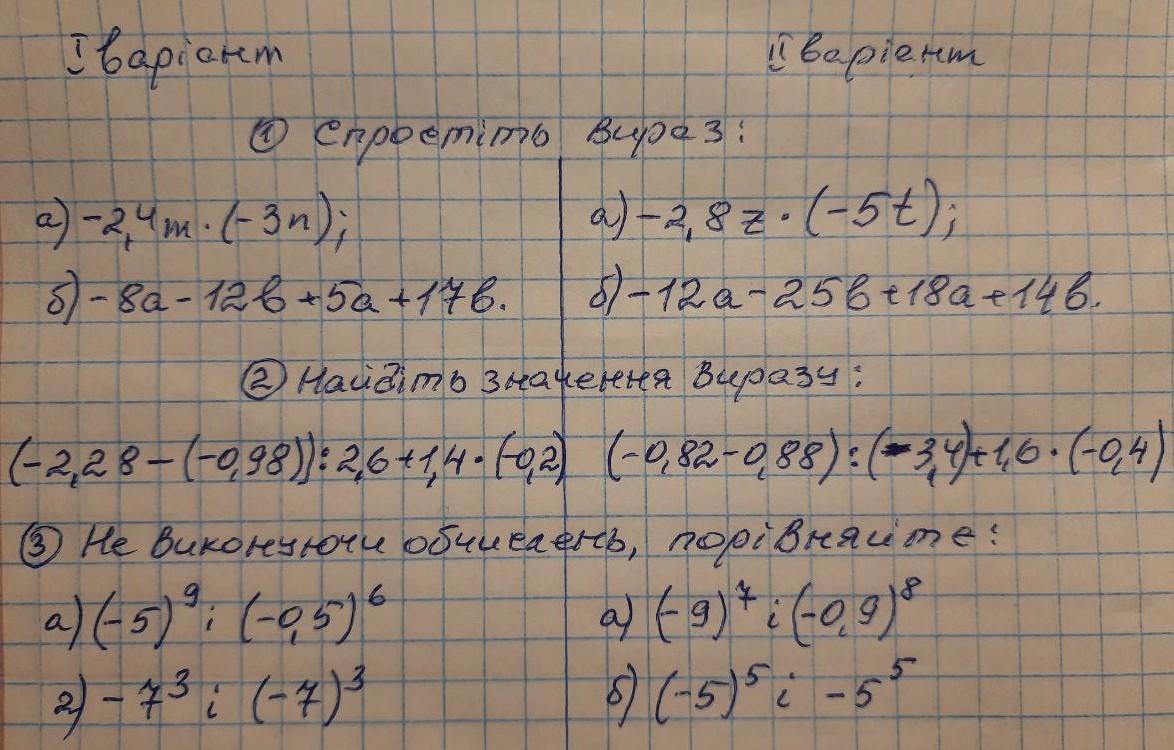 I варіант II варіант
① Спростіть вираз:
а) -2,4m·(-3n); а) -2,8z·(-5t);
б) -8a-12b+5a+17b. б) -12a-25b+18a+14b.
② Найдіть значення виразу:
(-2,28-(-0,98)):2,6+1,4·(-0,2) (-0,82-0,88):(-3,4)+1,6·(-0,4)
③ Не виконуючи обчислень, порівняйте:
а) (-5)⁹ і (-0,5)⁶ а) (-9)⁷ і (-0,9)⁸
2) -7³ і (-7)³ б) (-5)⁵ і -5⁵